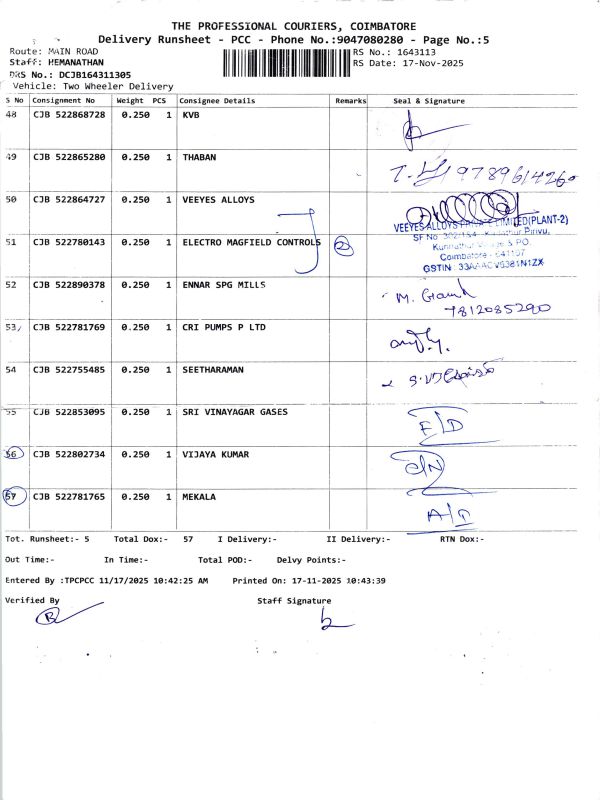 THE PROFESSIONAL COURIERS, COIMBATORE
Delivery Runsheet - PCC - Phone No.:9047080280 - Page No.:5
Route: MAIN ROAD RS No.: 1643113
Staff: HEMANATHAN RS Date: 17-Nov-2025
DRS No.: DCJB164311305
Vehicle: Two Wheeler Delivery
S No Consignment No Weight PCS Consignee Details Remarks Seal & Signature
48 CJB 522868728 0.250 1 KVB
49 CJB 522865280 0.250 1 THABAN 9789614260
50 CJB 522864727 0.250 1 VEEYES ALLOYS
VEEYES ALLOYS PRIVATE LIMITED(PLANT-2)
51 CJB 522780143 0.250 1 ELECTRO MAGFIELD CONTROLS 2
Coimbatore - 641107
GSTIN : 33AAACV6381N1ZX
52 CJB 522890378 0.250 1 ENNAR SPG MILLS M.
7812085290
53 CJB 522781769 0.250 1 CRI PUMPS P LTD
54 CJB 522755485 0.250 1 SEETHARAMAN
55 CJB 522853095 0.250 1 SRI VINAYAGAR GASES F/D
56 CJB 522802734 0.250 1 VIJAYA KUMAR C/N
57 CJB 522781765 0.250 1 MEKALA A/I
Tot. Runsheet:- 5 Total Dox:- 57 I Delivery:- II Delivery:- RTN Dox:-
Out Time:- In Time:- Total POD:- Delvy Points:-
Entered By :TPCPCC 11/17/2025 10:42:25 AM Printed On: 17-11-2025 10:43:39
Verified By Staff Signature